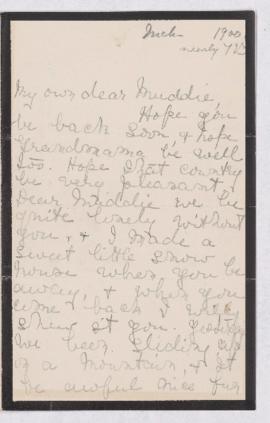 1900
nearly 7
My own dear Muddie
Hope you
be back soon & hope
Grandmama be well
too. Hope that country
be very pleasant,
Dear Muddie we be
quite lonely without
you, & I made a
sweet little snow
house when you be
away & when you
come back I will
show it you.
we been sliding
on a mountain, & it
be awful nice fun